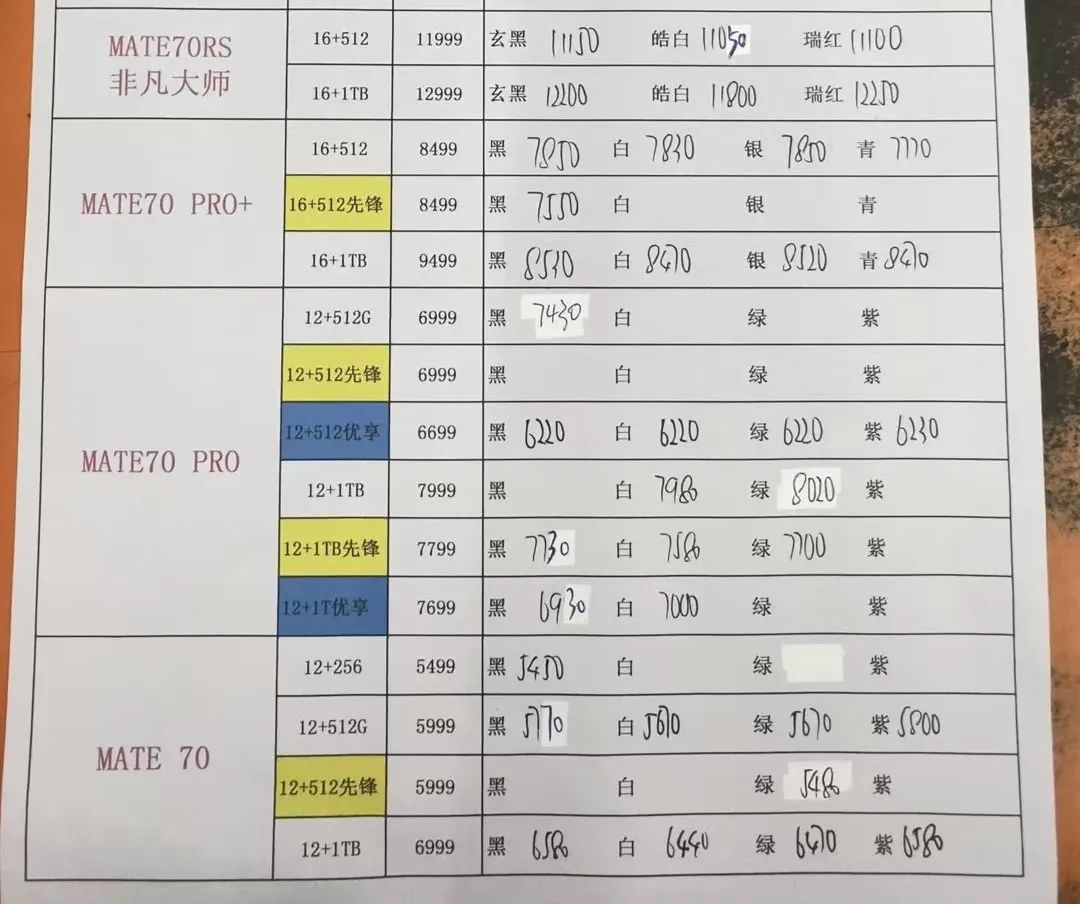 MATE70RS
非凡大师
16+512 11999 玄黑 11150 皓白 11050 瑞红 11100
16+1TB 12999 玄黑 12200 皓白 11800 瑞红 12250
MATE70 PRO+
16+512 8499 黑 7850 白 7830 银 7850 青 7770
16+512先锋 8499 黑 7550 白 银 青
16+1TB 9499 黑 8530 白 8470 银 8520 青 8470
MATE70 PRO
12+512G 6999 黑 7430 白 绿 紫
12+512先锋 6999 黑 白 绿 紫
12+512优享 6699 黑 6220 白 6220 绿 6220 紫 6230
12+1TB 7999 黑 白 7980 绿 8020 紫
12+1TB先锋 7799 黑 7730 白 7580 绿 7700 紫
12+1T优享 7699 黑 6930 白 7000 绿 紫
MATE 70
12+256 5499 黑 5450 白 绿 紫
12+512G 5999 黑 5770 白 5670 绿 5670 紫 5800
12+512先锋 5999 黑 白 绿 5480 紫
12+1TB 6999 黑 6580 白 6440 绿 6470 紫 6580